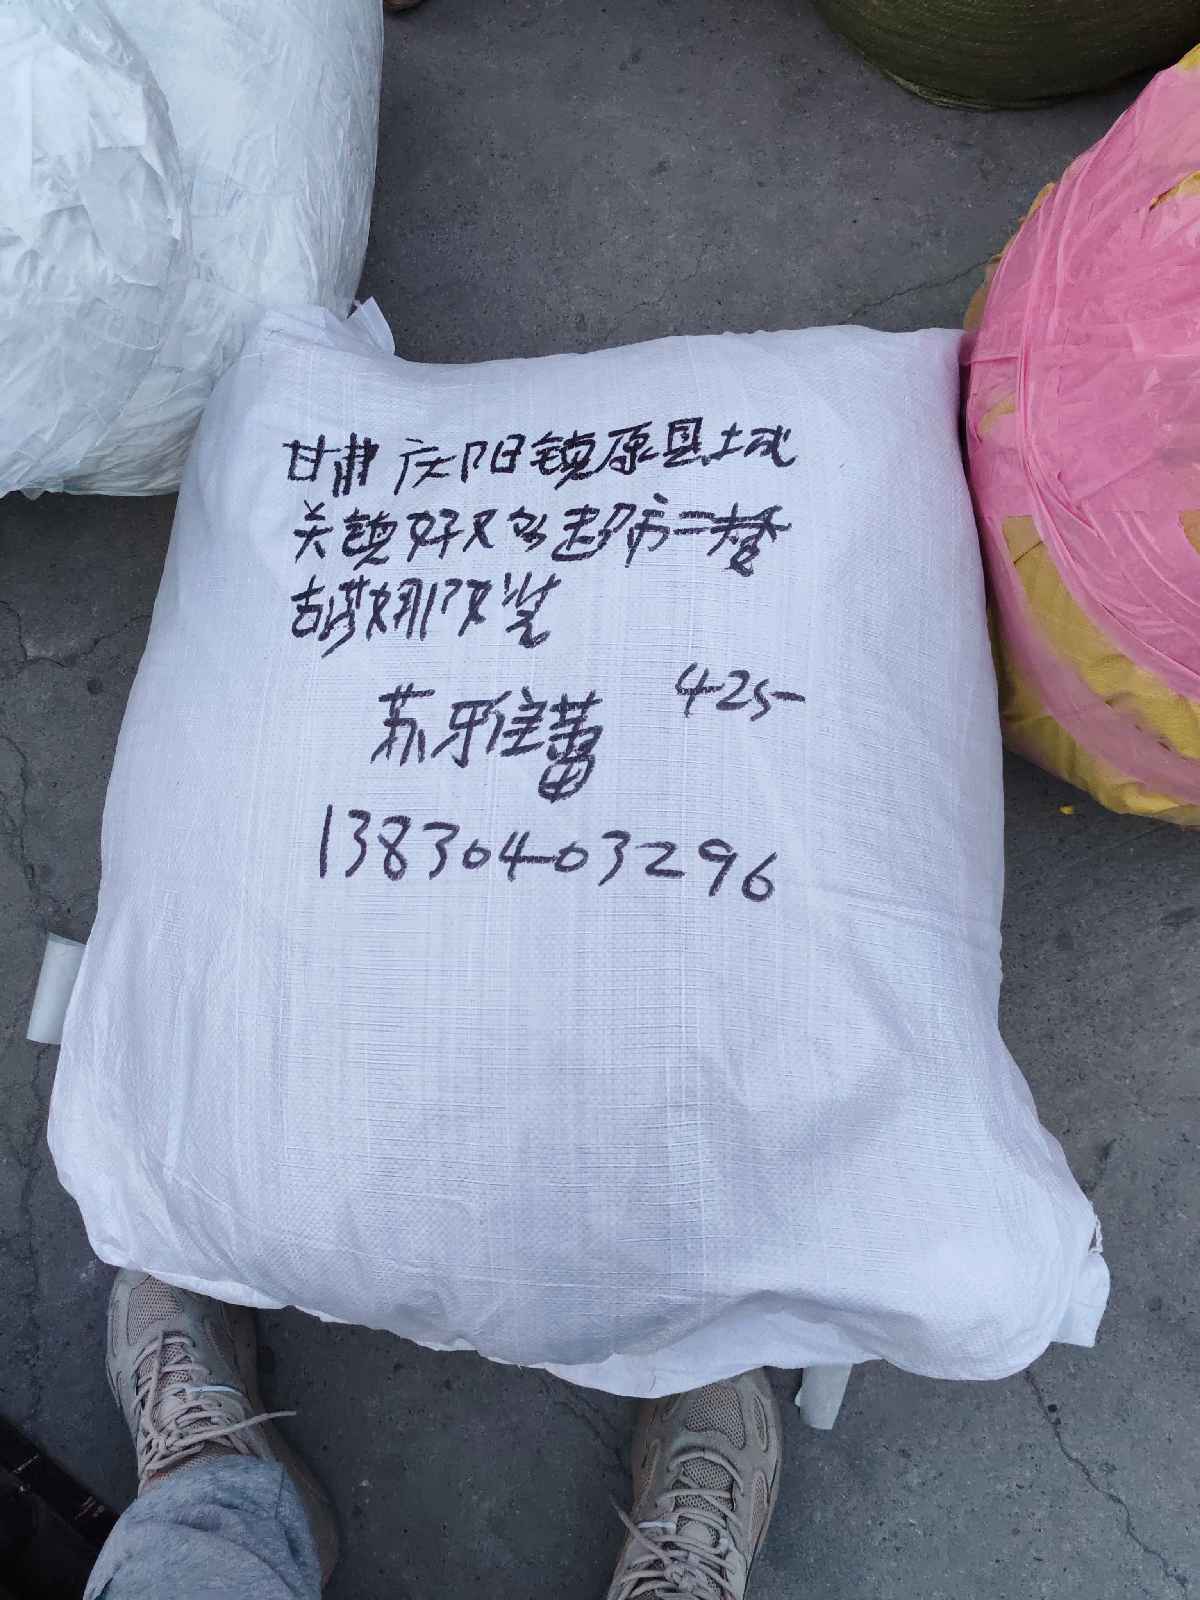 甘肃庆阳镇原县城
关镇好又多超市二楼
古莎娜附女装
苏雅佳蕾 4-25
13830403296